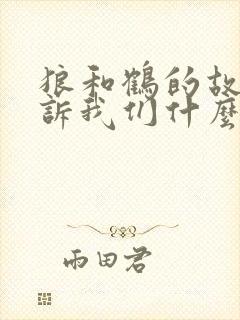 狼和鶴的故
訴我们什麼
雨田君